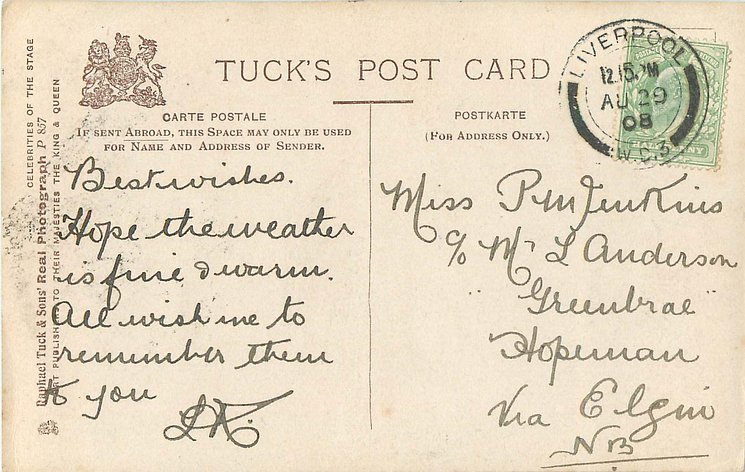 TUCK'S POST CARD
CARTE POSTALE
IF SENT ABROAD, THIS SPACE MAY ONLY BE USED
FOR NAME AND ADDRESS OF SENDER.
POSTKARTE
(FOR ADDRESS ONLY.)
CELEBRITIES OF THE STAGE
Raphael Tuck & Sons' Real Photograph P 857
ART PUBLISHERS TO THEIR MAJESTIES THE KING & QUEEN
LIVERPOOL
12.15 PM
AU 29
08
W.C.3
Best wishes.
Hope the weather
is fine & warm.
All wish me to
remember them
to you
Miss P M Jenkins
c/o Mr L Anderson
"Greenbrae"
Hopeman
Via Elgin
NB